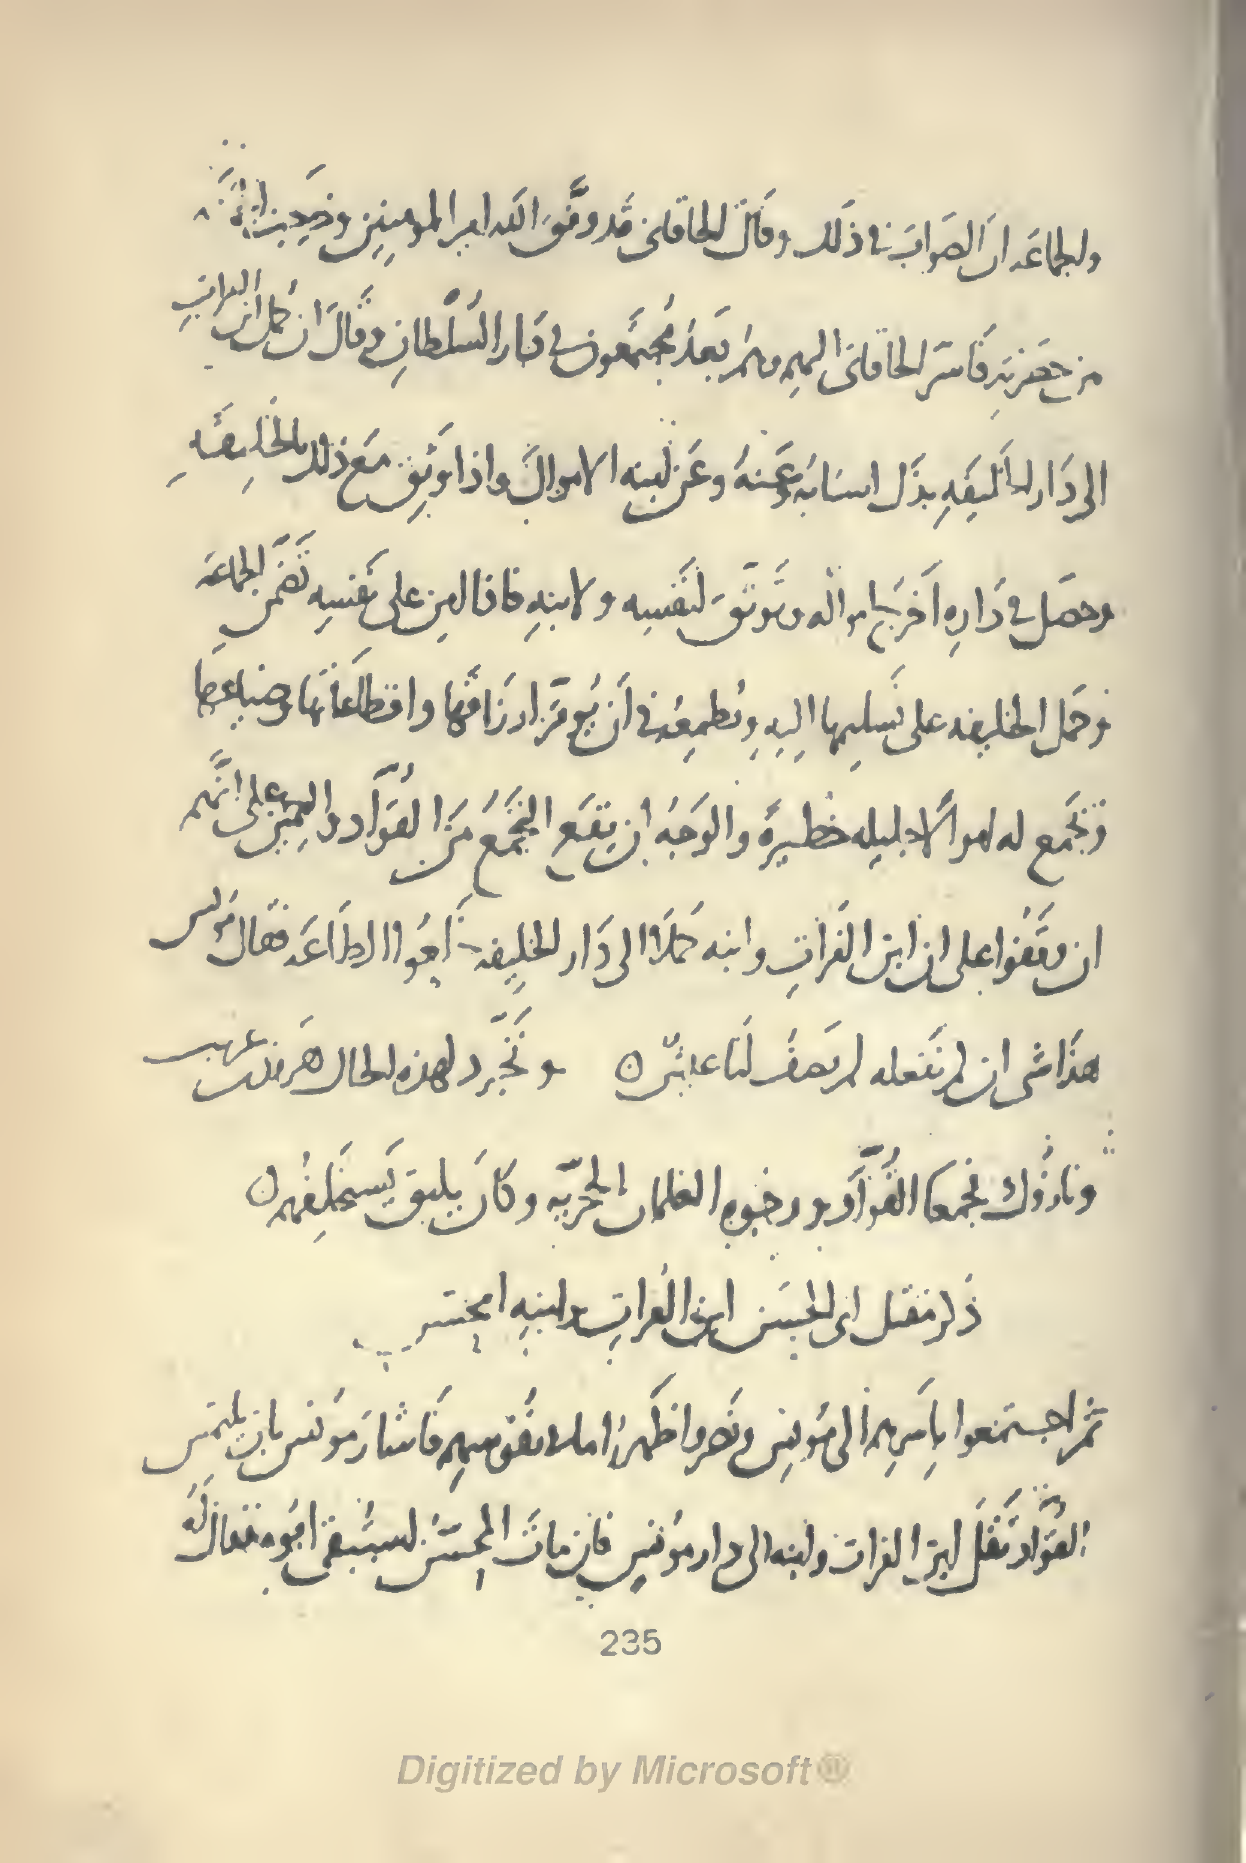 والجماعه ان الصواب في ذلك وقال الخاقاني قد وفق الله امير المومنين وخرجت
من حضرته فاسر الخاقاني اليهم وهم بعد مجتمعون في دار السلطان وقال ان حمل ابن الفرات
الى دار الخليفه بذل اسبابه وعنه وعن ابنه الاموال واذا وثق مع ذلك بالخليفه
وحصل في داره اخرج امواله وتوثق لنفسه ولابنه فاذا امن على نفسه تضمن الجماعه
وحمل الخليفه على تسليمها اليه ويطمعه في ان يوفر ارزاقها واقطاعاتها وضياعها
وتجمع له اموالا جليله خطيرة والوجه ان يقع التجمع من القواد واليمين على انهم
ان وقفوا على ان ابن الفرات وابنه حملا الى دار الخليفه خلعوا الطاعه فقال مونس
هذا شى ان لم نفعله لم يصف لنا عيش ن وتجرد لهذه الحال هرون بن غريب
ونازوك فجمعا القواد ووجوه الغلمان الحجريه وكان يلبق يستحلفهم ن
ذكر مقتل ابى الحسن ابن الفرات وابنه المحسن
ثم اجتمعوا باسرهم الى مونس ونصر واظهروا ما في نفوسهم فاشار مونس بان يلتمس
القواد نقل ابن الفرات وابنه الى دار مونس فان مات المحسن استبقى ابوه فقال له
235
Digitized by Microsoft®